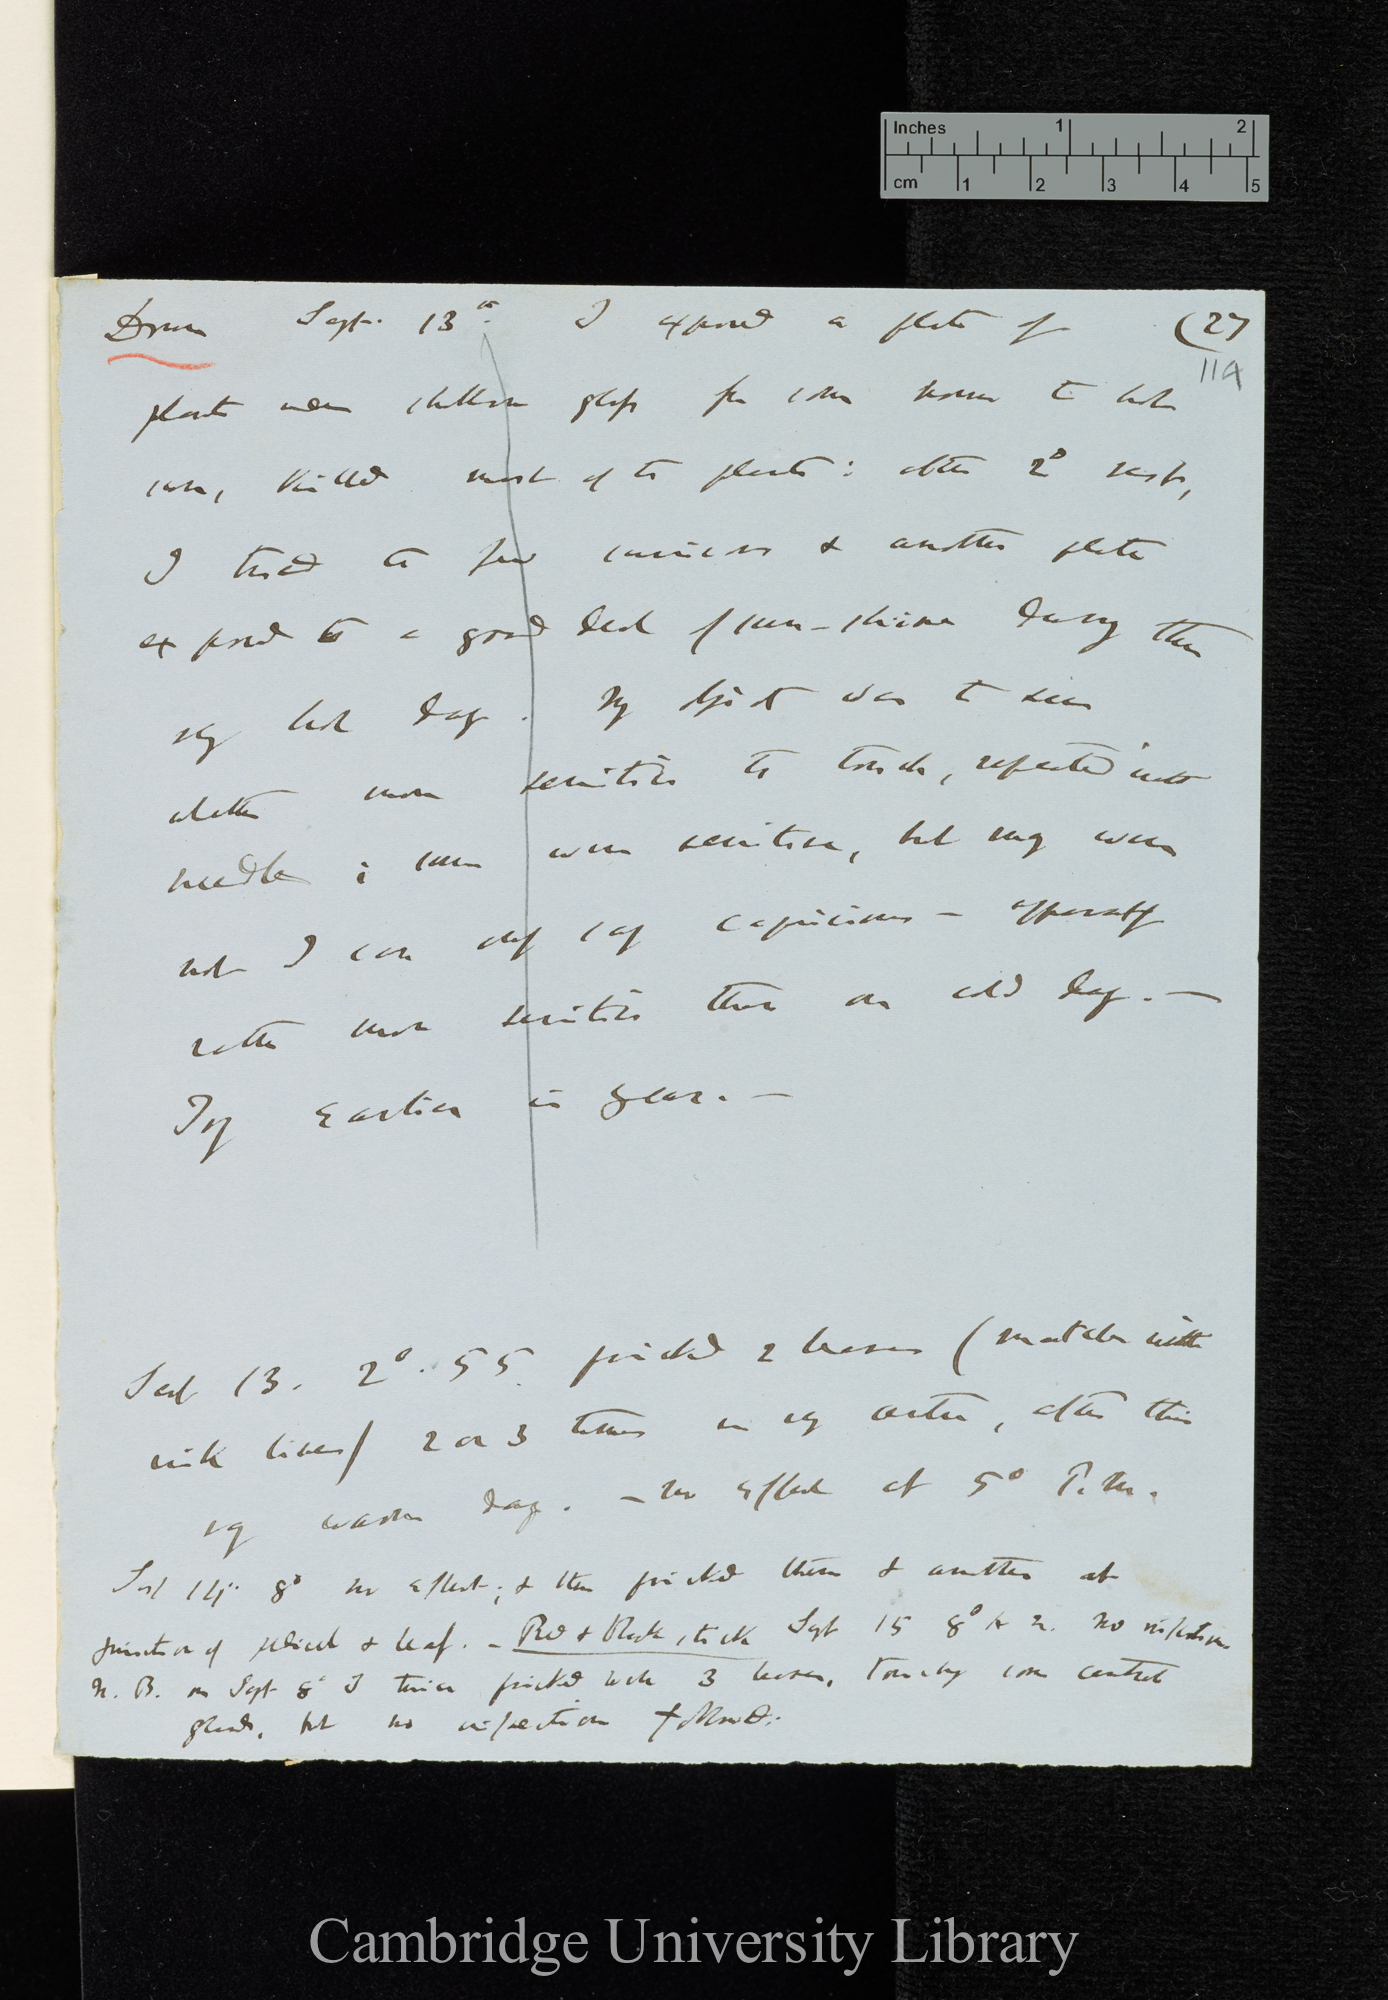 Inches 1 2
cm 1 2 3 4 5
Drosera Sept. 13th. I exposed a plate of (27
119
plants under shallow glass for some hours to hot
sun, killed most of the plants: after 2° rest,
I tried the few survivors & another plate
exposed to a good deal of sun-shine during this
very hot day. My object was to see
whether more sensitive to touch, repeated with
needle; some were sensitive, but many were
not I can only say capricious — apparently
rather more sensitive than on cold day. —
Try earlier in year. —
Sept 13. 2°. 55 pricked 2 leaves (matches with
ink lines) 2 or 3 times in very centre, after this
very warm day. — no effect at 5° P.M.
Sept 14. 8° no effect; & then pricked them & another at
junction of pedicel & leaf. — Red & Black stick Sept 15 8° A. M. no inflection
N. B. on Sept 8° I twice pricked with 3 leaves, touching some central
glands, but no inflection followed.
Cambridge University Library